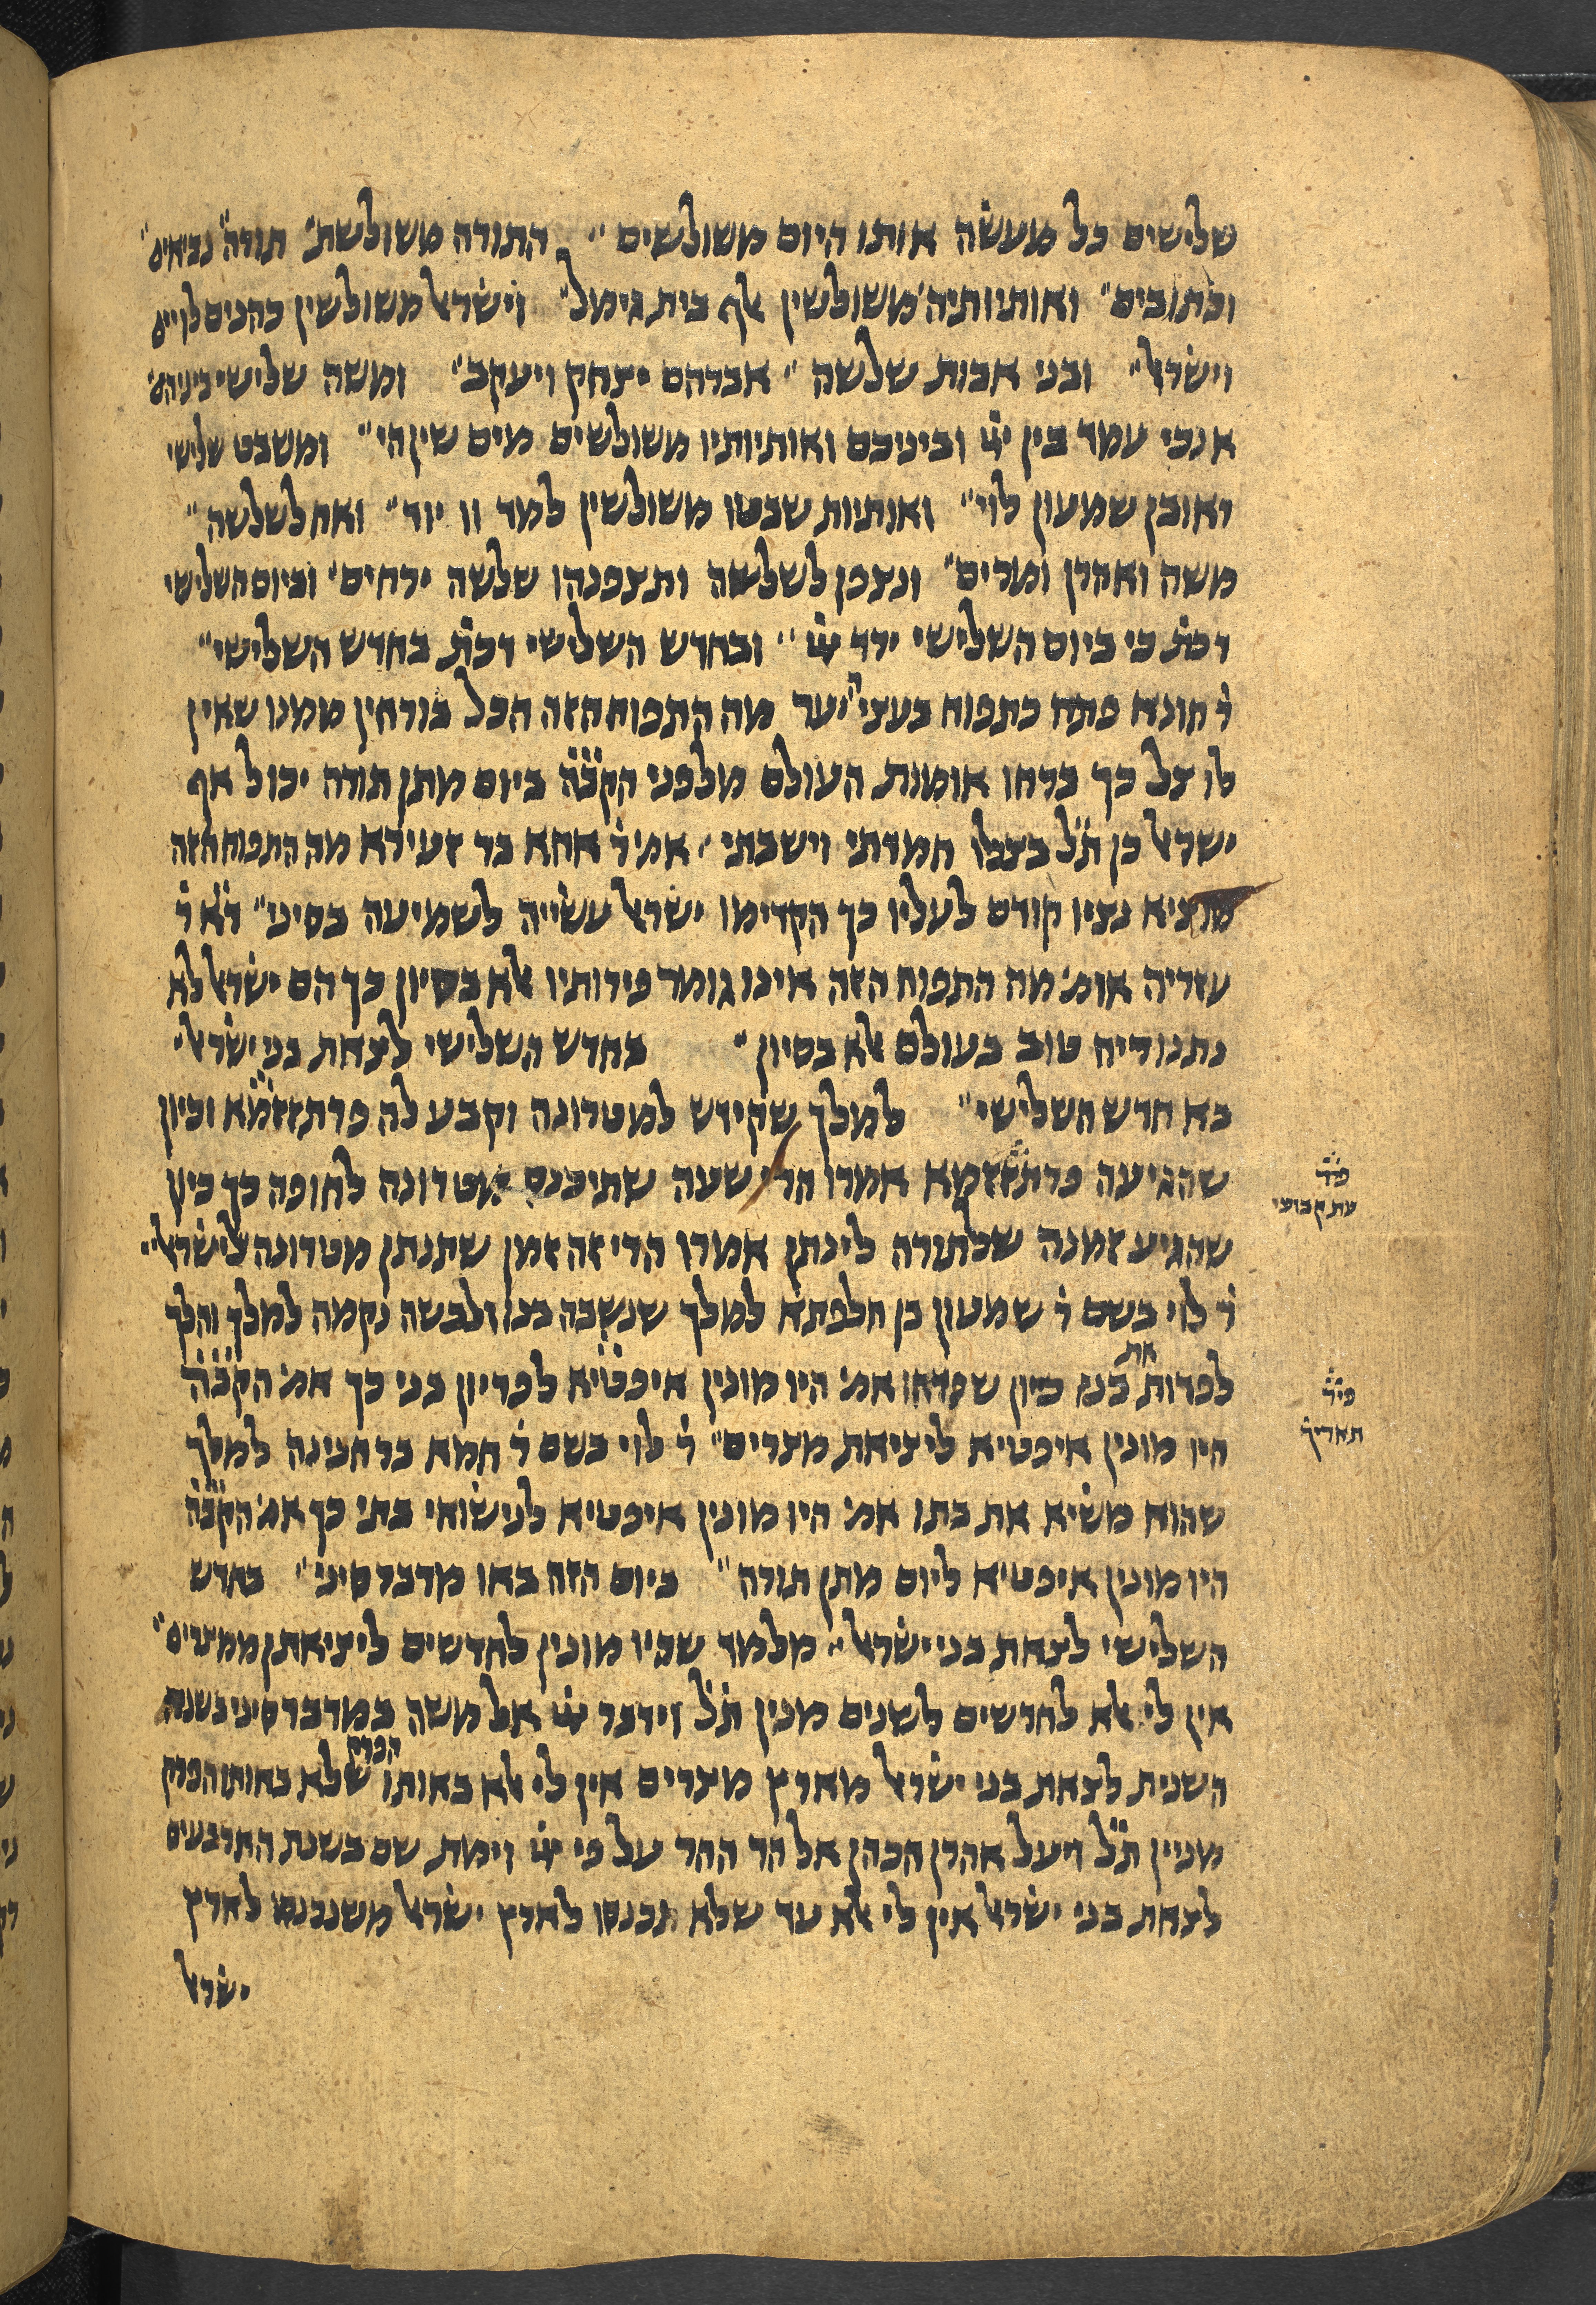 שלישים כל מעשה אותו היום משולשים ׳׳ התורה משולשת׳ תורה׳ נביאים׳׳
וכתובים׳׳ ואותיותיה׳ משולשין אלף בית גימל׳׳ וישראל משולשין כהנים לויים
וישראל׳׳ ובני אבות שלשה ׳׳ אברהם יצחק ויעקב׳׳ ומשה שלישי ביניהם׳
אנכי עמד בין ייי וביניכם ואותיותיו משולשים מים שין הי׳׳ ומשבט שלישי
ראובן שמעון לוי׳׳ ואותיות שבטו משולשין למד וו יוד׳׳ ואח לשלשה׳׳
משה ואהרן ומרים׳׳ ונצפן לשלשה ותצפנהו שלשה ירחים׳ וביום השלישי
דכת׳ כי ביום השלישי ירד ייי ׳׳ ובחדש השלישי דכת׳ בחדש השלישי׳׳
ר׳ חונא פתח כתפוח בעצי היער מה התפוח הזה הכל בורחין ממנו שאין
לו צל כך ברחו אומות העולם מלפני הקב׳ה ביום מתן תורה יכול אף
ישראל כן ת׳ל בצלו חמדתי וישבתי׳׳ אמ׳ ר׳ אחא בר זעירא מה התפוח הזה
מוציא נציו קודם לעליו כך הקדימו ישראל עשייה לשמיעה בסיני׳׳ ד׳א ר׳
עזריה אומ׳ מה התפוח הזה אינו גומר פירותיו אלא בסיון כך הם ישראל לא
נתנו ריח טוב בעולם אלא בסיון׳׳ בחדש השלישי לצאת בני ישראל׳
בא חדש השלישי׳׳ למלך שקידש למטרונה וקבע לה פרתזזמא וכיון
שהגיעה פרתזזמא אמרו הרי שעה שתיכנס מטרונה לחופה כך כיון
שהגיע זמנה שלתורה לינתן אמרו הרי זה זמן שתנתן מטרונה לישראל׳׳
ר׳ לוי בשם ר׳ שמעון בן חלפתא למלך שנשבה בנו ולבשה נקמה למלך והלך
לפדות את בנו כיון שפדאו אמ׳ היו מונין איפטיא לפריון בני כך אמ׳ הקב׳ה
היו מונין איפטיא ליציאת מצרים׳׳ ר׳ לוי בשם ר׳ חמא בר חנינה למלך
שהוא משיא את בתו אמ׳ היו מונין איפטיא לנישואי בתי כך אמ׳ הקב׳ה
היו מונין איפטיא ליום מתן תורה׳׳ ביום הזה באו מדבר סיני׳׳ בחדש
השלישי לצאת בני ישראל׳׳ מלמד שהיו מונין לחדשים ליציאתן ממצרים׳׳
אין לי אלא לחדשים לשנים מנין ת׳ל וידבר ייי אל משה במדבר סיני בשנה
השנית לצאת בני ישראל מארץ מצרים אין לי אלא באותו הפרק שלא באותו הפרק
מניין ת׳ל ויעל אהרן הכהן אל הר ההר על פי ייי וימת שם בשנת הארבעים
לצאת בני ישראל אין לי אלא עד שלא נכנסו לארץ ישראל משנכנסו לארץ
ישראל
פיר׳
עת קבועי
פיר׳
תאריך